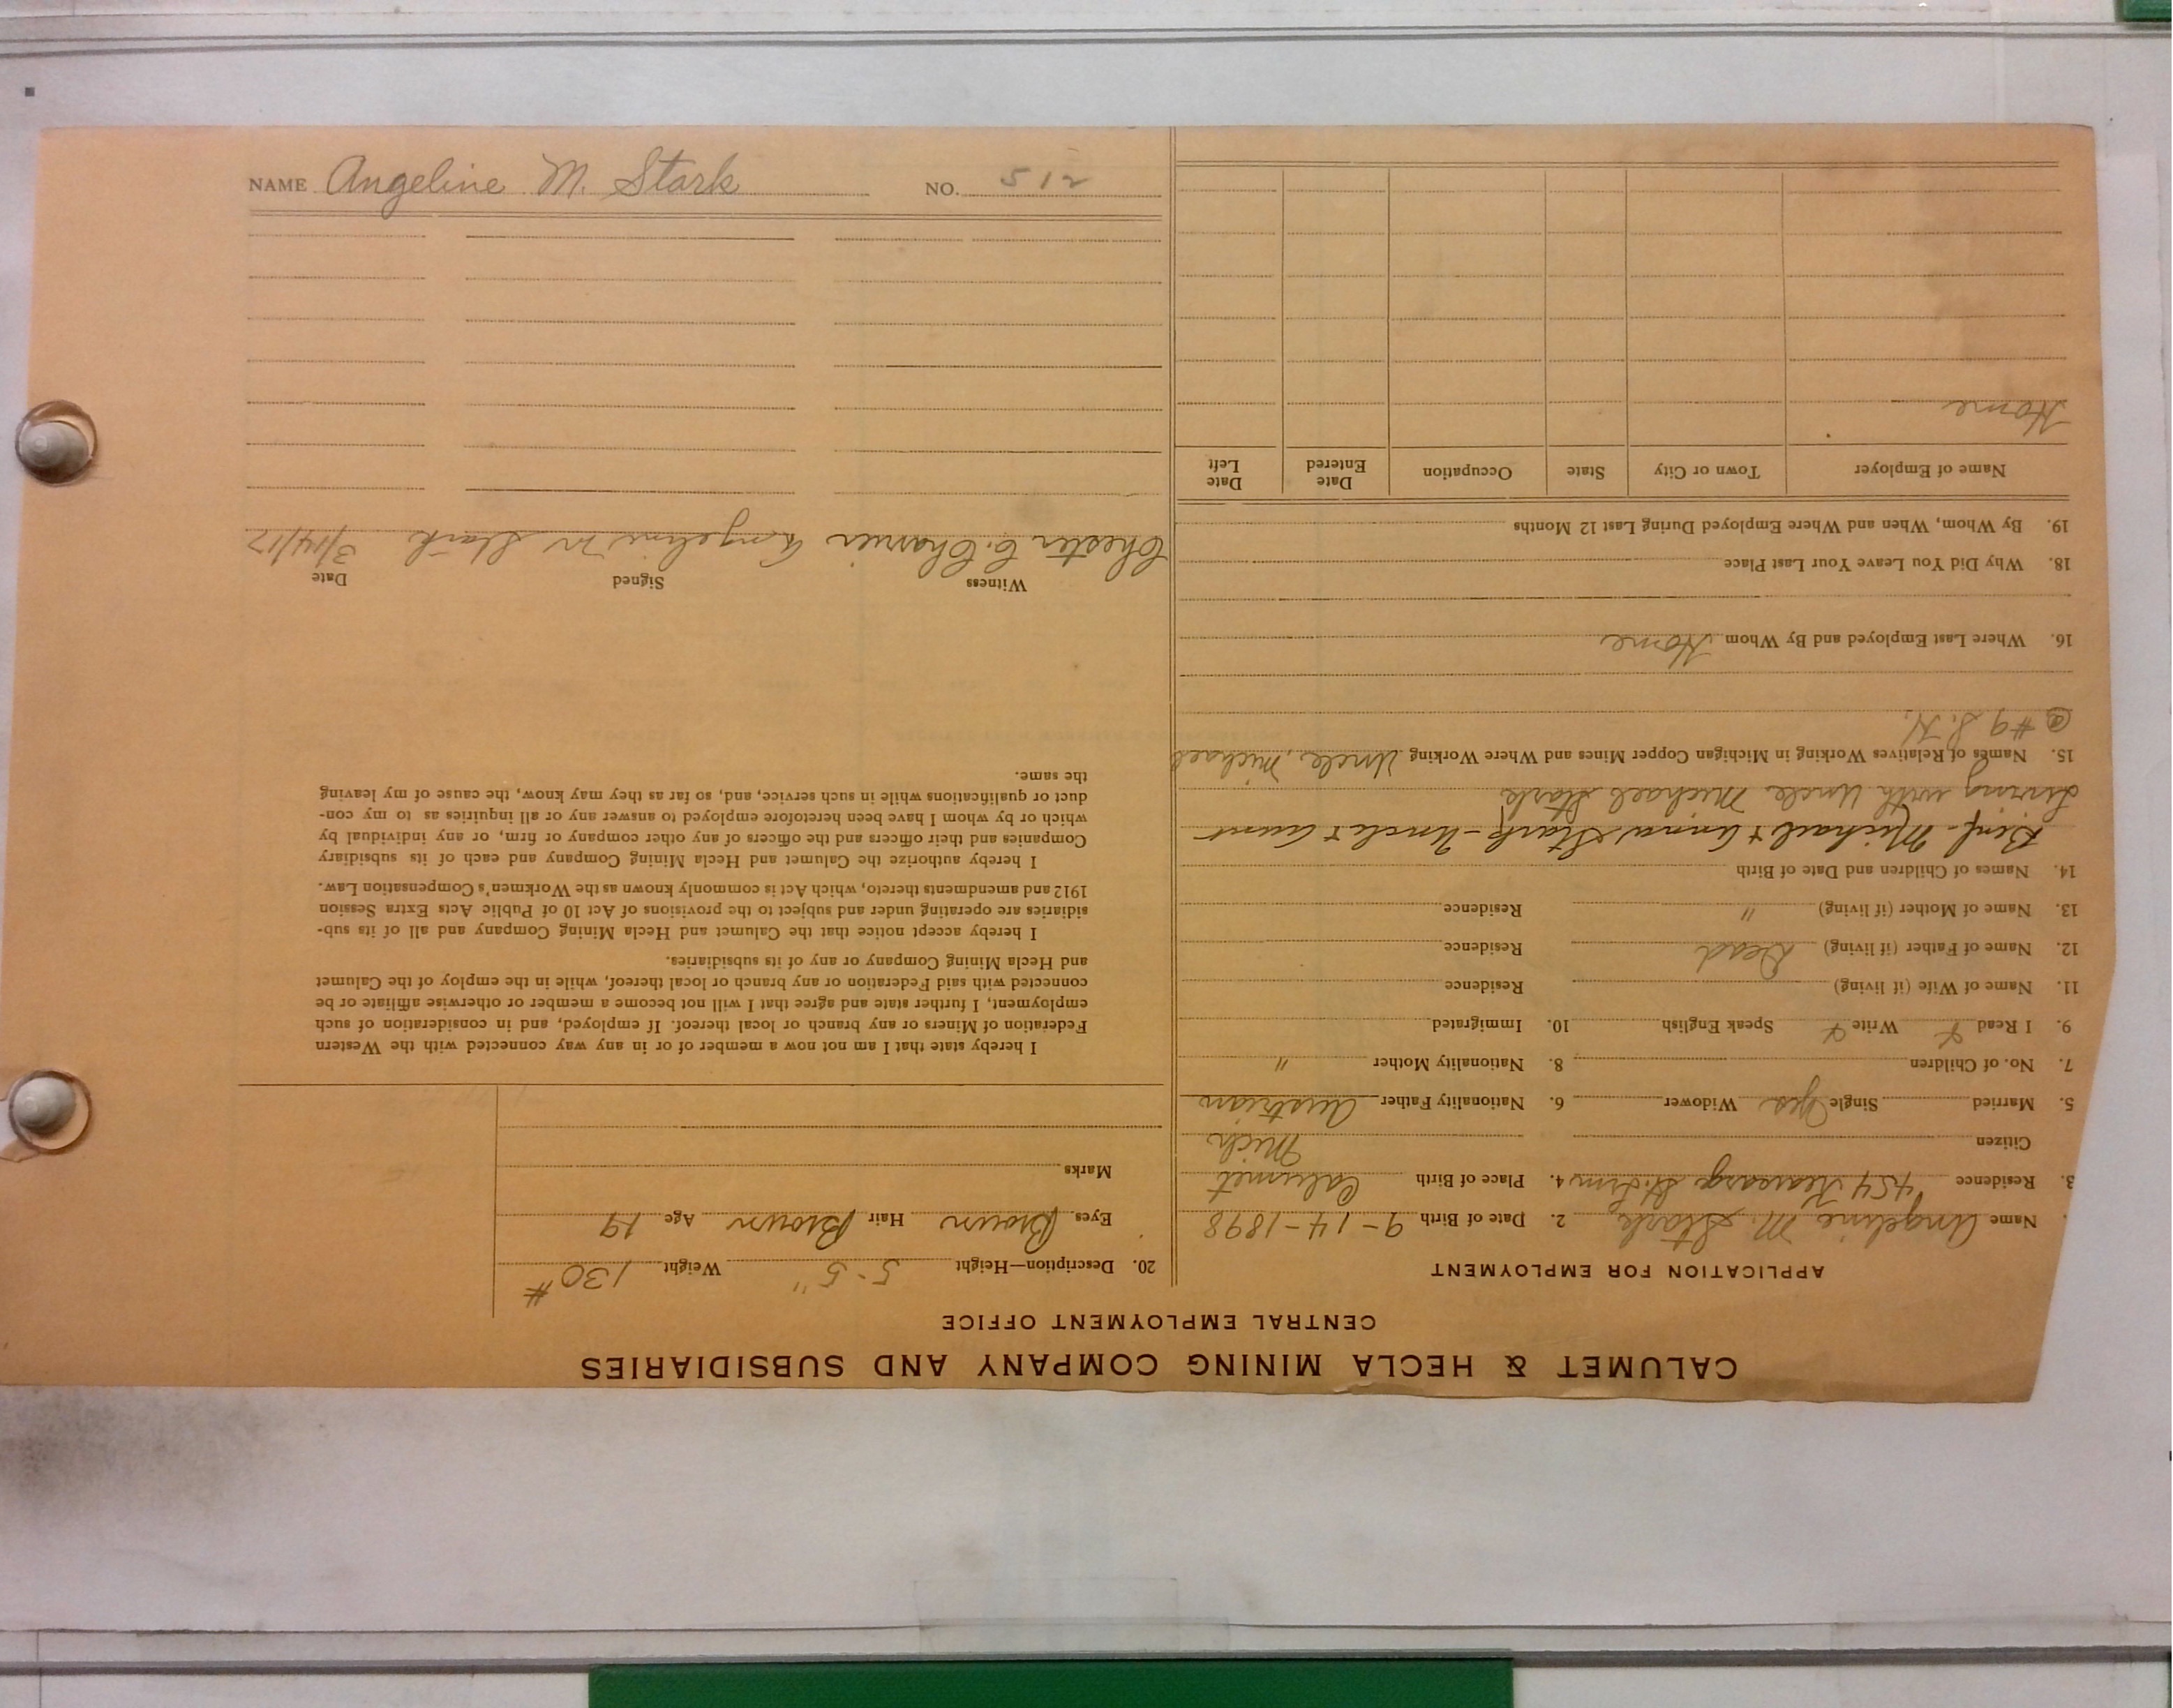 CALUMET & HECLA MINING COMPANY AND SUBSIDIARIES
CENTRAL EMPLOYMENT OFFICE
APPLICATION FOR EMPLOYMENT
Name Angeline M. Stark 2. Date of Birth 9-14-1898
3. Residence 454 Kearsarge St. Lrm 4. Place of Birth Calumet
Citizen Mich
5. Married Single Yes Widower 6. Nationality Father Austrian
7. No. of Children 8. Nationality Mother "
9. I Read Write Speak English 10. Immigrated
11. Name of Wife (if living) Residence
12. Name of Father (if living) Dead Residence
13. Name of Mother (if living) " Residence
14. Names of Children and Date of Birth
Benf- Michael & Anna Stark - Uncle & Aunt
Living with Uncle Michael Stark
15. Names of Relatives Working in Michigan Copper Mines and Where Working Uncle, Michael
@ #9 S.H.
16. Where Last Employed and By Whom Home
18. Why Did You Leave Your Last Place
19. By Whom, When and Where Employed During Last 12 Months
Name of Employer Town or City State Occupation Date Entered Date Left
Home
20. Description—Height 5-5" Weight 130#
Eyes Brown Hair Brown Age 19
Marks
I hereby state that I am not now a member of or in any way connected with the Western
Federation of Miners or any branch or local thereof. If employed, and in consideration of such
employment, I further state and agree that I will not become a member or otherwise affiliate or be
connected with said Federation or any branch or local thereof, while in the employ of the Calumet
and Hecla Mining Company or any of its subsidiaries.
I hereby accept notice that the Calumet and Hecla Mining Company and all of its sub-
sidiaries are operating under and subject to the provisions of Act 10 of Public Acts Extra Session
1912 and amendments thereto, which Act is commonly known as the Workmen's Compensation Law.
I hereby authorize the Calumet and Hecla Mining Company and each of its subsidiary
Companies and their officers and the officers of any other company or firm, or any individual by
which or by whom I have been heretofore employed to answer any or all inquiries as to my con-
duct or qualifications while in such service, and, so far as they may know, the cause of my leaving
the same.
Witness Signed Date
Chester C. Charier Angeline M Stark 3/14/17
NAME Angeline M. Stark NO. 512